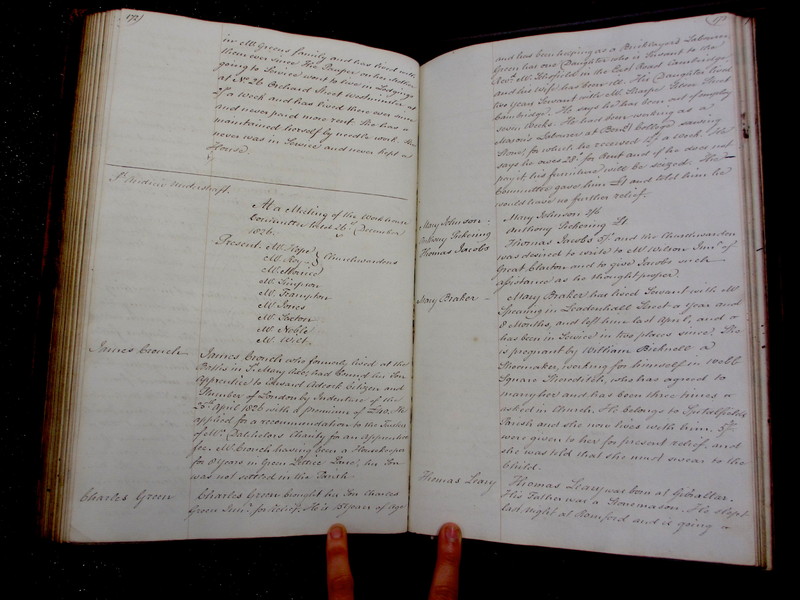 172
in Mr Greens family and has lived with
them ever since Her Pauper on her
going to Service went to live in Lodgings
at No. 26 Orchard Street Westminster at
2/ a Week and has lived there ever since
and never paid more rent. She has
maintained herself by needle work. She
never was in Service and never kept a
House
St Andrew Undershaft
At a Meeting of the Workhouse
Committee held 26th December
1826
Present Mr Hope
Mr Roy
Churchwardens
Mr
Mr Simpson
Mr Frampton
Mr Jones
Mr Saxton
Mr Noble
Mr Wilt
James Crouch
James Crouch who formerly lived at the
Baths in St Mary Axe, had bound his Son
Apprentice to Edward Adcock Citizen and
Plumber of London by Indenture of the
25th April 1826 with a premium of He
applied for a recommendation to the Trustees
of Mr Batchelors Charity for an Apprentice
fee Mr Crouch having been a Housekeeper
for 8 Years in Green Lettice Lane, his Son
was not settled in the Parish
Charles Green
Charles Green brought his Son Charles
Green Junr. for relief. He is years of age
173
and has been helping as a Bricklayer's Labourer
Green has one Daughter who is Servant to the
Revd. Mr in the East Road Cambridge
and his Wife has been ill. His Daughter lived
two Years Servant with Mr Sharpe Street
Cambridge. He says he has been out of employ
seven Weeks. He had been working as a
Mason's Labourer at College sawing
Stone, for which he received a week. He
says he owes for Rent and if he does not
pay it, his furniture will be seized. The
Committee gave him £1 and told him he
would have no further relief.
Mary Johnson
Mary Johnson 2/6
Anthony Pickering
Anthony Pickering £1
Thomas Jacobs
Thomas Jacobs 5/- and the Churchwarden
was desired to write to Mr Wilson Junr. of
Great Clacton and to give Jacobs such
assistance as he thought proper
Mary Braker
Mary Braker has lived Servant with Mr
in Leadenhall Street a Year and
8 Months, and left him last April, and
has been in Service in two places since. She
is pregnant by William Bicknell a
Shoemaker, working for himself in Webb
Square Shoreditch, who has agreed to
marry her and has been three times
asked in Church. He belongs to Spitalfields
Parish and she now lives with him. 5/-
were given to her for present relief, and
she was told that she must swear to the
Child.
Thomas Leary
Thomas Leary was born at Gibraltar.
His Father was a Stonemason. He slept
last night at Romford and is going